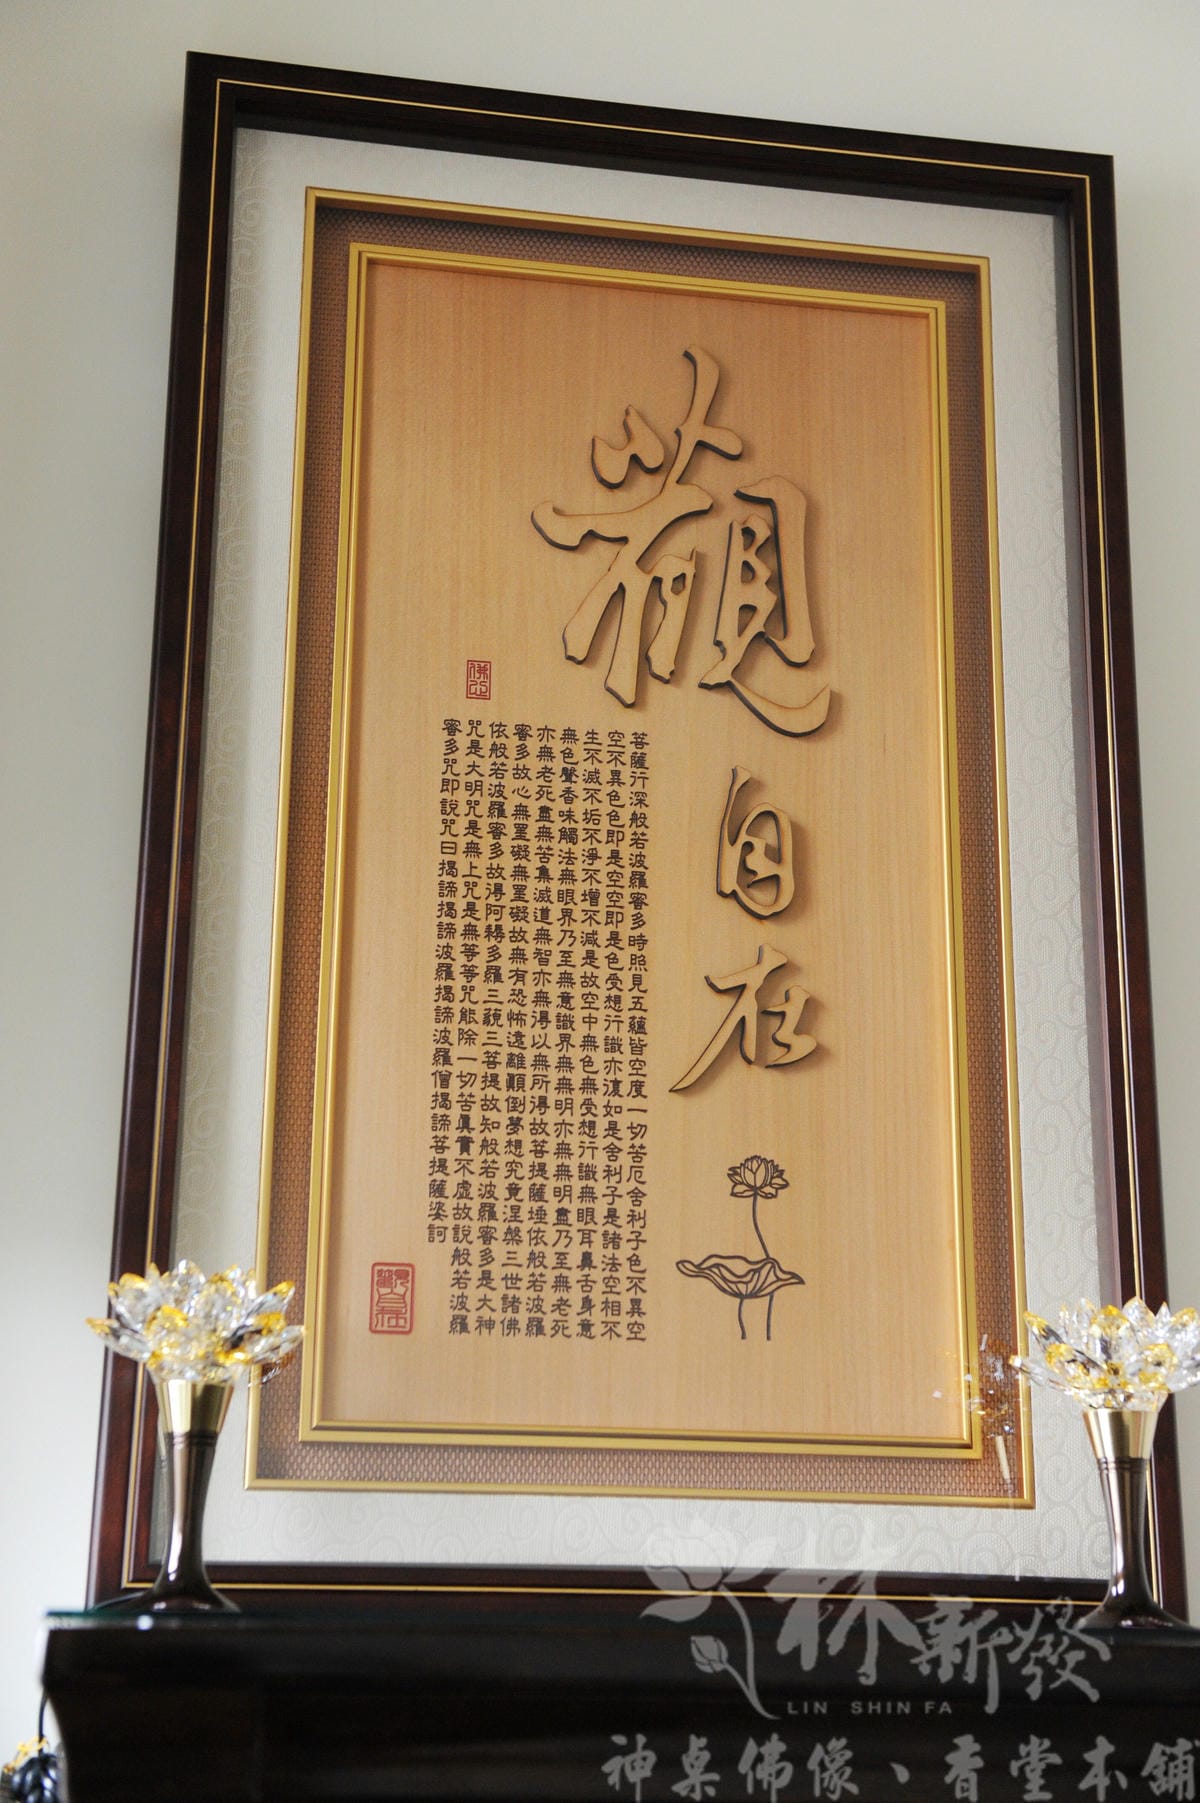 觀自在
菩薩行深般若波羅蜜多時照見五蘊皆空度一切苦厄舍利子色不異空
空不異色色即是空空即是色受想行識亦復如是舍利子是諸法空相不
生不滅不垢不淨不增不減是故空中無色無受想行識無眼耳鼻舌身意
無色聲香味觸法無眼界乃至無意識界無無明亦無無明盡乃至無老死
亦無老死盡無苦集滅道無智亦無得以無所得故菩提薩埵依般若波羅
蜜多故心無罣礙無罣礙故無有恐怖遠離顛倒夢想究竟涅槃三世諸佛
依般若波羅蜜多故得阿耨多羅三藐三菩提故知般若波羅蜜多是大神
咒是大明咒是無上咒是無等等咒能除一切苦真實不虛故說般若波羅
蜜多咒即說咒曰揭諦揭諦波羅揭諦波羅僧揭諦菩提薩婆訶
觀自在
林新發
LIN SHIN FA
神桌佛像、香堂本舖